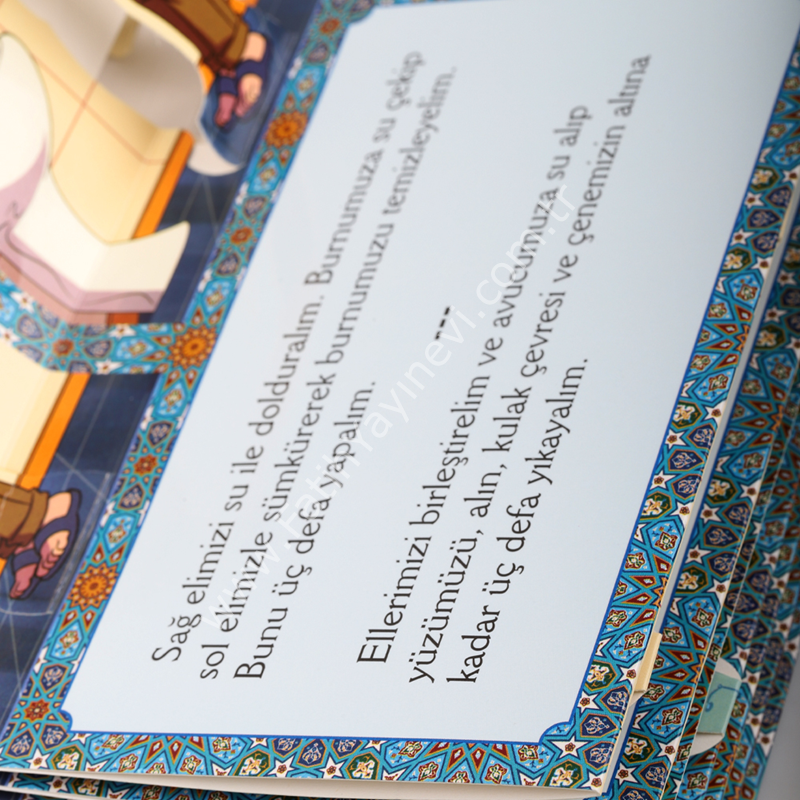 Sağ elimizi su ile dolduralım. Burnumuza su çekip
sol elimizle sümkürerek burnumuzu temizleyelim.
Bunu üç defa yapalım.
---
Ellerimizi birleştirelim ve avucumuza su alıp
yüzümüzü, alın, kulak çevresi ve çenemizin altına
kadar üç defa yıkayalım.
www.fatihyayinevi.com.tr